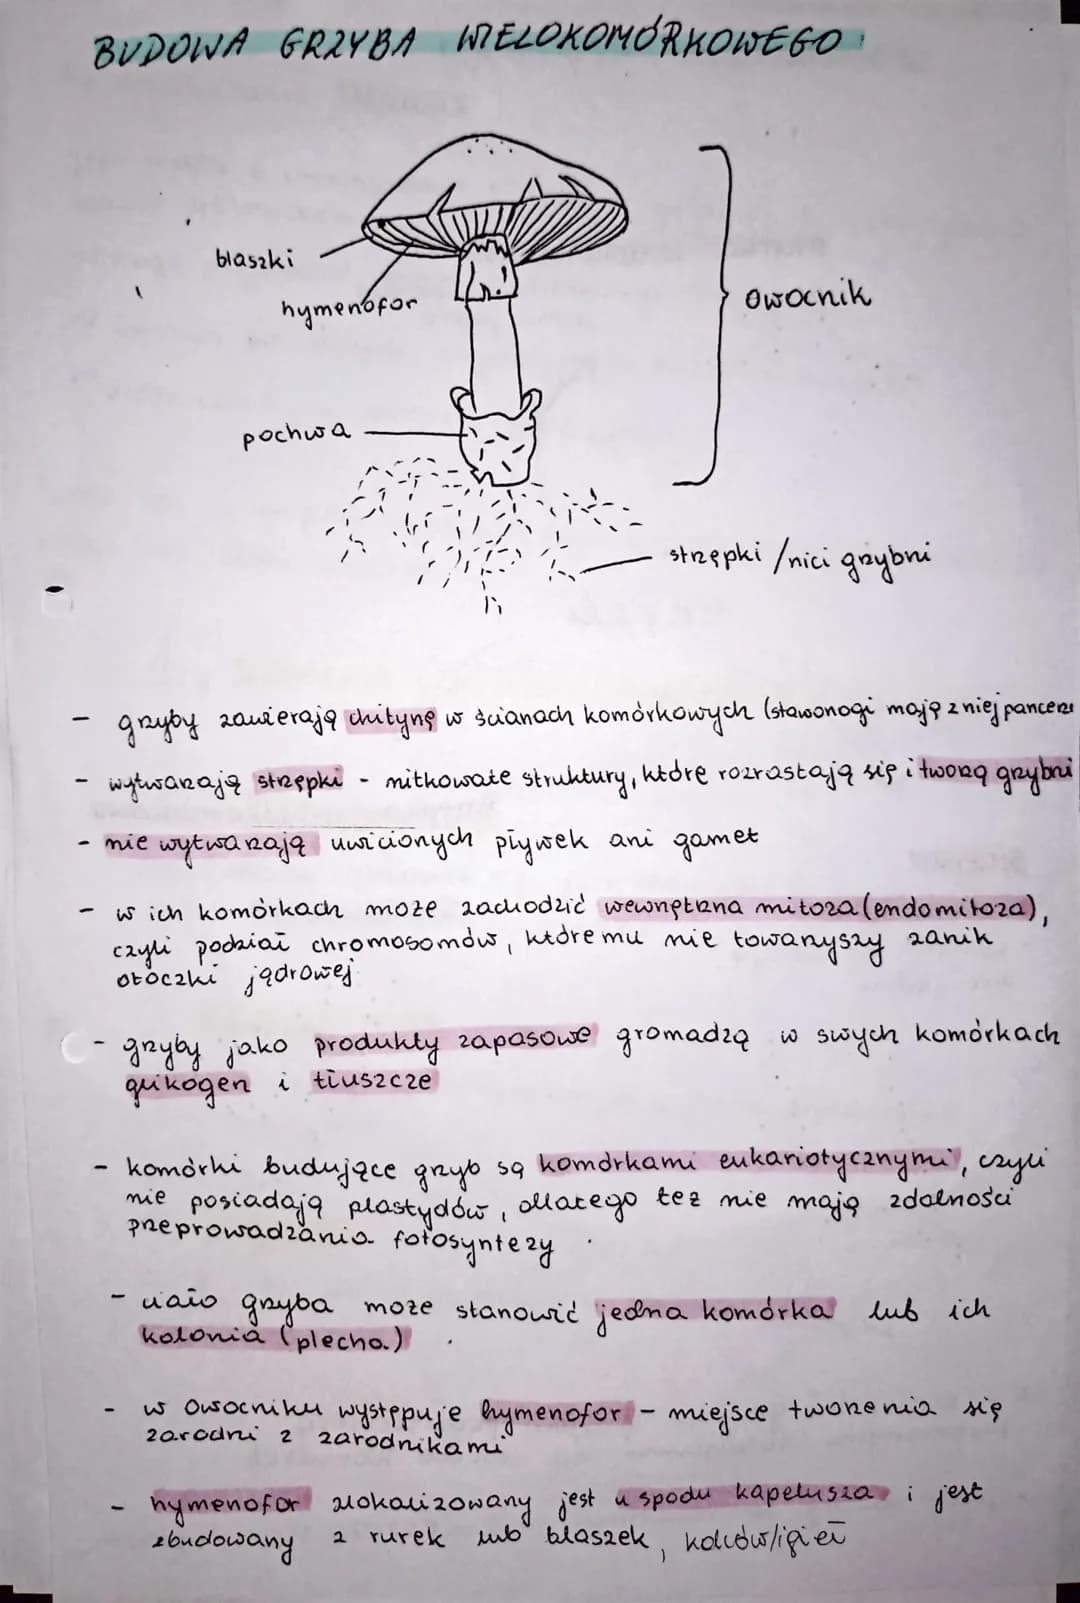 BUDOWA GRZYBA WIELOKOMÓRKOWEGO
blaszki
hymenofor
owocnik
pochwa
strzępki /nici grzybni
- grzyby zawierają chitynę w ścianach komórkowych (stawonogi mają z niej pancerz
- wytwarzają strzępki - nitkowate struktury, które rozrastają się i tworzą grzybni
- nie wytwarzają uwicionych pływek ani gamet
- w ich komórkach może zachodzić wewnętrzna mitoza (endomitoza),
czyli podział chromosomów, któremu nie towarzyszy zanik
otoczki jądrowej
- grzyby jako produkty zapasowe gromadzą w swych komórkach
glikogen i tłuszcze
- komórki budujące grzyb są komórkami eukariotycznymi, czyli
nie posiadają plastydów, dlatego też nie mają zdolności
przeprowadzania fotosyntezy
- ciało grzyba może stanowić jedna komórka lub ich
kolonia (plecha)
- w owocniku występuje hymenofor - miejsce tworzenia się
zarodni z zarodnikami
- hymenofor zlokalizowany jest u spodu kapelusza i jest
zbudowany z rurek lub blaszek, kolców/igieł